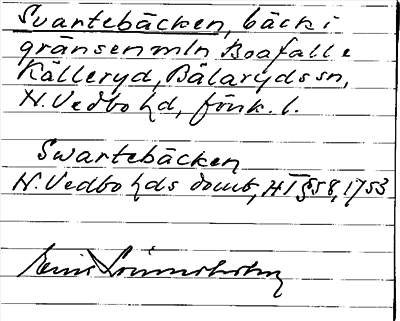 Svartebäcken, bäck i
gränsen mln Boafall o
Källeryd, Bälaryds sn,
N. Vedbo hd, fönk. l.
Swartebäcken
N. Vedbo hds domb, HI §58, 1753